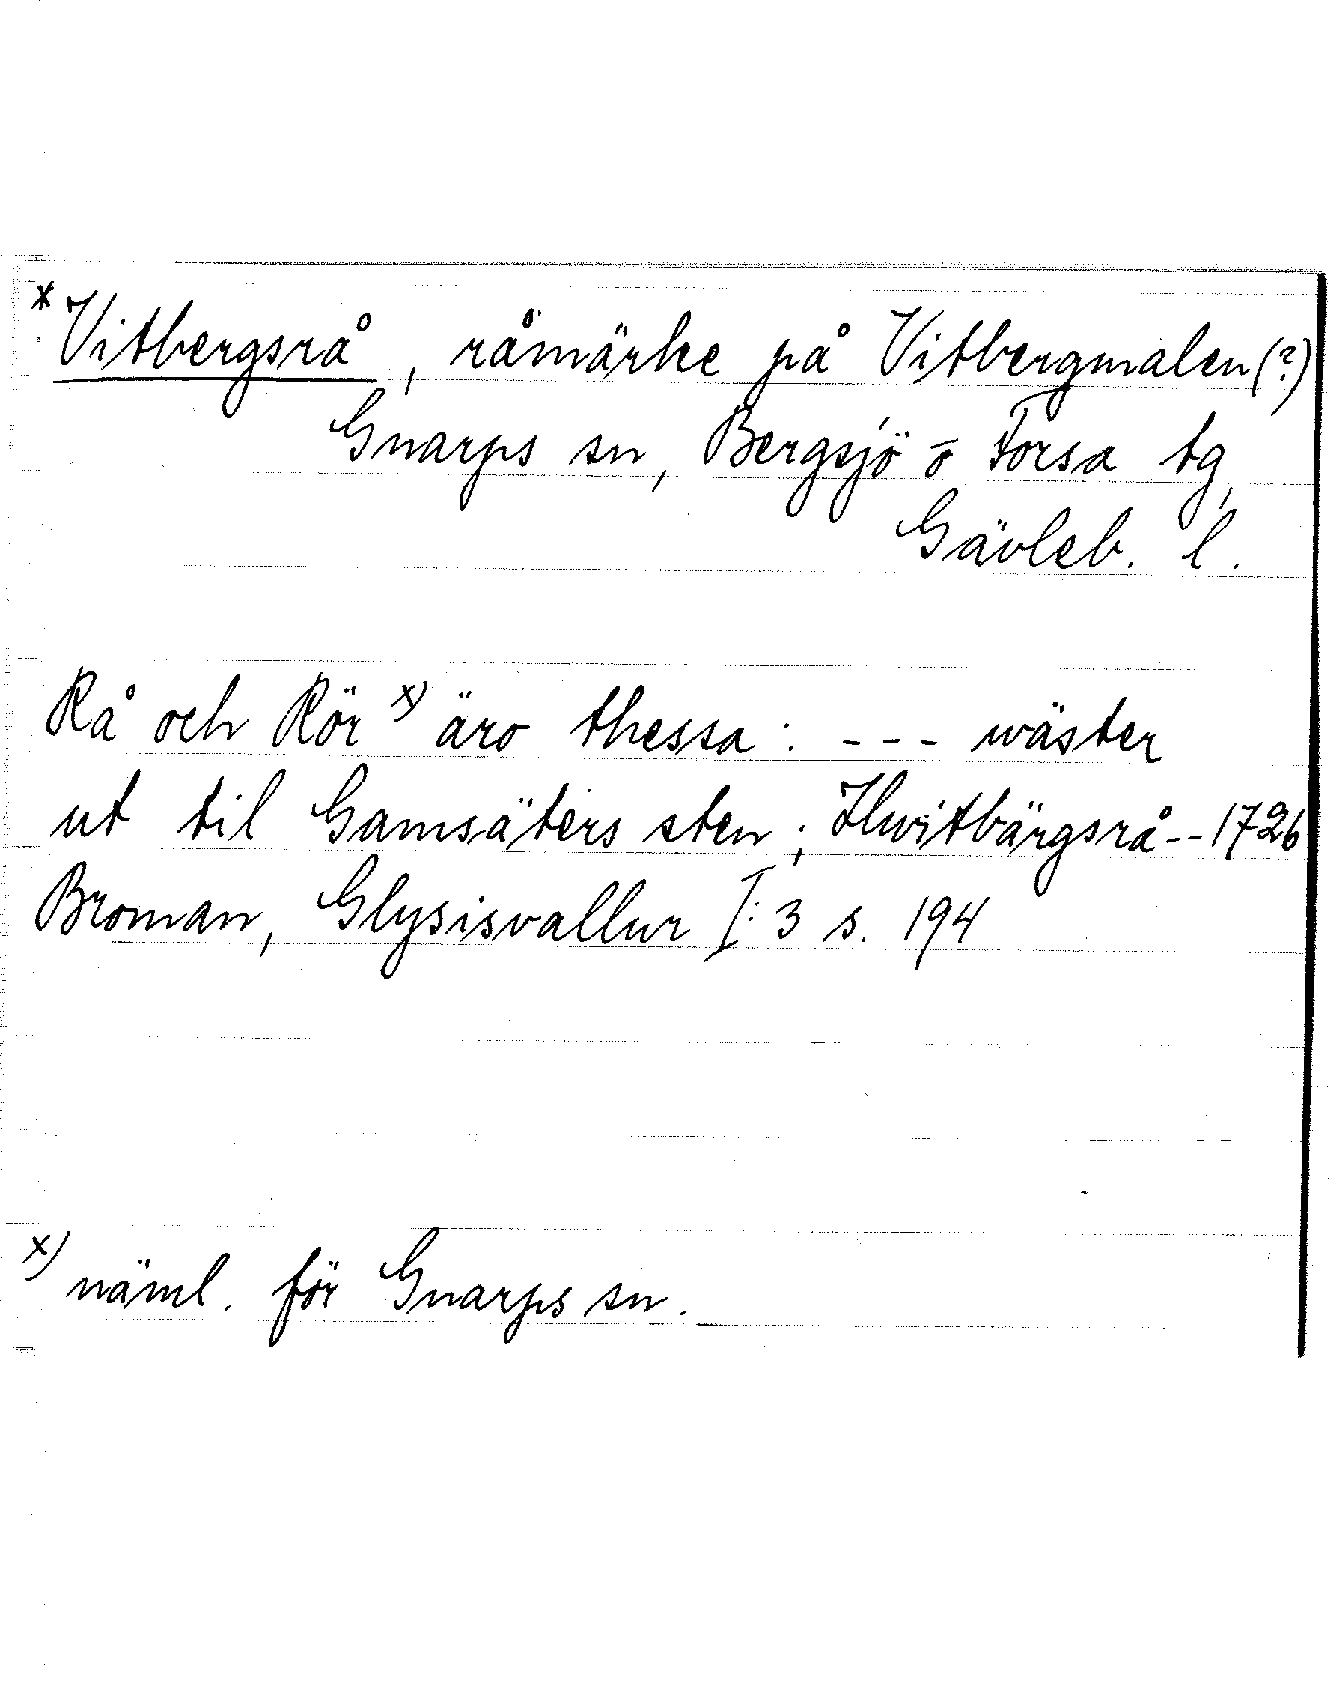 x Vitbergsrå, råmärke på Vitbergmalen (?)
Gnarps sn, Bergsjö o Forsa tg,
Gävleb. l.
Rå och Rör x) äro thessa: --- wäster
ut til Gamsäters sten; Hwitbärgsrå -- 1726
Broman, Glysisvallur I:3 s. 194
x) näml. för Gnarps sn.